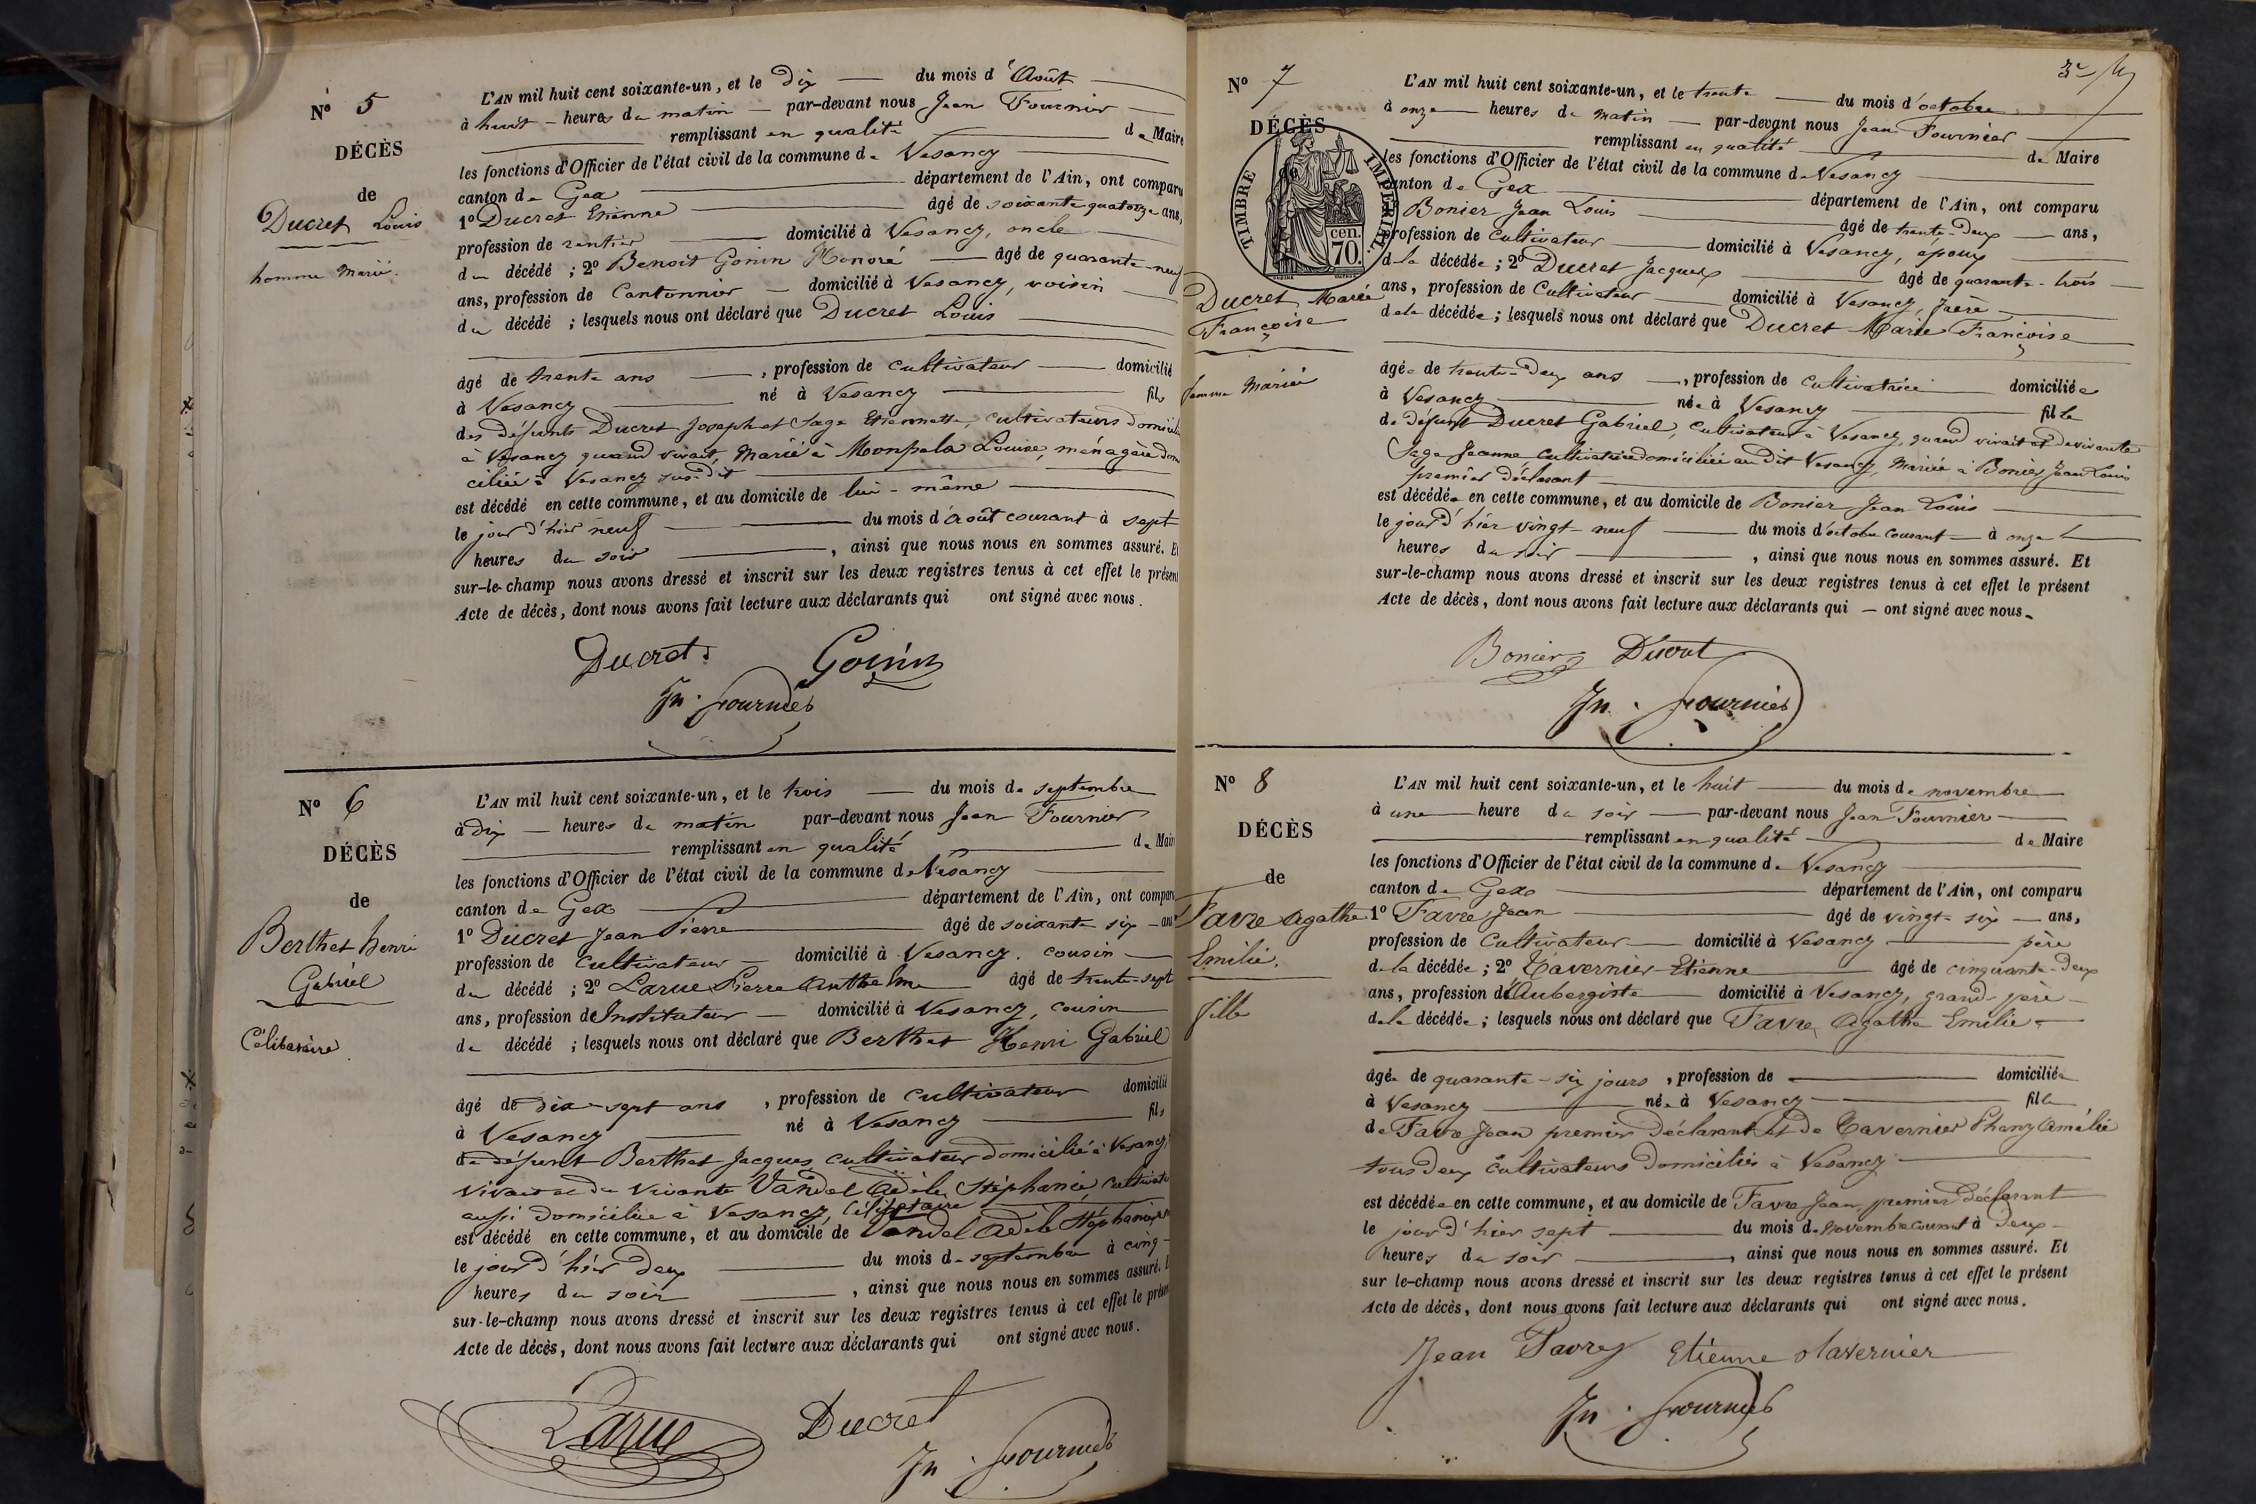 N° 5
DÉCÈS
de
Ducret Louis
homme marié.
L'AN mil huit cent soixante-un, et le dix du mois d'Août
à huit heures du matin par-devant nous Jean Fournier
remplissant en qualité de Maire
les fonctions d'Officier de l'état civil de la commune de Vesancy
canton de Gex département de l'Ain, ont comparu
1° Ducret Etienne âgé de soixante quatorze ans,
profession de rentier domicilié à Vesancy, oncle
du décédé ; 2° Benoit Gonin Honoré âgé de quarante-neuf
ans, profession de Cantonnier domicilié à Vesancy, voisin
du décédé ; lesquels nous ont déclaré que Ducret Louis
âgé de trente ans , profession de cultivateur domicilié
à Vesancy né à Vesancy fils
des défunts Ducret Joseph et Sage Etiennette, cultivateurs
à Vesancy quand vivait, Marié à Monpela Louise, ménagère
ciliée à Vesancy sus-dit
est décédé en cette commune, et au domicile de lui-même
le jour d'hier neuf du mois d'Août courant à sept
heures du soir , ainsi que nous nous en sommes assuré. Et
sur-le-champ nous avons dressé et inscrit sur les deux registres tenus à cet effet le présent
Acte de décès, dont nous avons fait lecture aux déclarants qui ont signé avec nous.
Ducret Gonin
Jn. Fournier
N° 6
DÉCÈS
de
Berthet henri
Gabriel
Célibataire.
L'AN mil huit cent soixante-un, et le trois du mois de septembre
à dix heures du matin par-devant nous Jean Fournier
remplissant en qualité de Maire
les fonctions d'Officier de l'état civil de la commune de Vesancy
canton de Gex département de l'Ain, ont comparu
1° Ducret Jean Pierre âgé de soixante six ans
profession de cultivateur domicilié à Vesancy. cousin
du décédé ; 2° Larue Pierre Anthelme âgé de trente-sept
ans, profession d'Instituteur domicilié à Vesancy, cousin
du décédé ; lesquels nous ont déclaré que Berthet Henri Gabriel
âgé de dix-sept ans , profession de cultivateur domicilié
à Vesancy né à Vesancy fils
de défunt Berthet Jacques cultivateur domicilié à Vesancy,
vivait et de vivante Vandel Adèle Stéphanie,
aussi domiciliée à Vesancy, Célibataire
est décédé en cette commune, et au domicile de Vandel Adèle Stéphanie,
le jour d'hier deux du mois de septembre à cinq
heures du soir , ainsi que nous nous en sommes assuré.
sur-le-champ nous avons dressé et inscrit sur les deux registres tenus à cet effet le présent
Acte de décès, dont nous avons fait lecture aux déclarants qui ont signé avec nous.
Larue Ducret
Jn. Fournier
N° 7
DÉCÈS
de
TIMBRE IMPÉRIAL.
cen.
70.
Ducret Marie
Françoise
femme Mariée
L'AN mil huit cent soixante-un, et le trente du mois d'octobre
à onze heures du matin par-devant nous Jean Fournier
remplissant en qualité de Maire
les fonctions d'Officier de l'état civil de la commune de Vesancy
canton de Gex département de l'Ain, ont comparu
Bonier Jean Louis âgé de trente-deux ans,
profession de cultivateur domicilié à Vesancy, époux
de la décédée ; 2° Ducret Jacques âgé de quarante-trois
ans, profession de Cultivateur domicilié à Vesancy, frère
de la décédée ; lesquels nous ont déclaré que Ducret Marie Françoise
âgée de trente-deux ans , profession de cultivatrice domiciliée
à Vesancy née à Vesancy fille
de défunt Ducret Gabriel, cultivateur à Vesancy, quand vivait et de vivante
Sage Jeanne cultivatrice domiciliée au dit Vesancy, Mariée à Bonier Jean Louis
premier déclarant
est décédée en cette commune, et au domicile de Bonier Jean Louis
le jour d'hier vingt-neuf du mois d'octobre courant à onze
heures du soir , ainsi que nous nous en sommes assuré. Et
sur-le-champ nous avons dressé et inscrit sur les deux registres tenus à cet effet le présent
Acte de décès, dont nous avons fait lecture aux déclarants qui ont signé avec nous.
Bonier Ducret
Jn. Fournier
N° 8
DÉCÈS
de
Favre Agathe
Emilie.
fille
L'AN mil huit cent soixante-un, et le huit du mois de novembre
à une heure du soir par-devant nous Jean Fournier
remplissant en qualité de Maire
les fonctions d'Officier de l'état civil de la commune de Vesancy
canton de Gex département de l'Ain, ont comparu
1° Favre Jean âgé de vingt-six ans,
profession de Cultivateur domicilié à Vesancy père
de la décédée ; 2° Tavernier Etienne âgé de cinquante-deux
ans, profession d'Aubergiste domicilié à Vesancy, grand-père
de la décédée ; lesquels nous ont déclaré que Favre Agathe Emilie
âgée de quarante-six jours , profession de domiciliée
à Vesancy née à Vesancy fille
de Favre Jean premier déclarant et de Tavernier Phany Amélie
tous deux cultivateurs domiciliés à Vesancy
est décédée en cette commune, et au domicile de Favre Jean premier déclarant
le jour d'hier sept du mois de novembre courant à deux
heures du soir , ainsi que nous nous en sommes assuré. Et
sur le-champ nous avons dressé et inscrit sur les deux registres tenus à cet effet le présent
Acte de décès, dont nous avons fait lecture aux déclarants qui ont signé avec nous.
Jean Favre Etienne Tavernier
Jn. Fournier